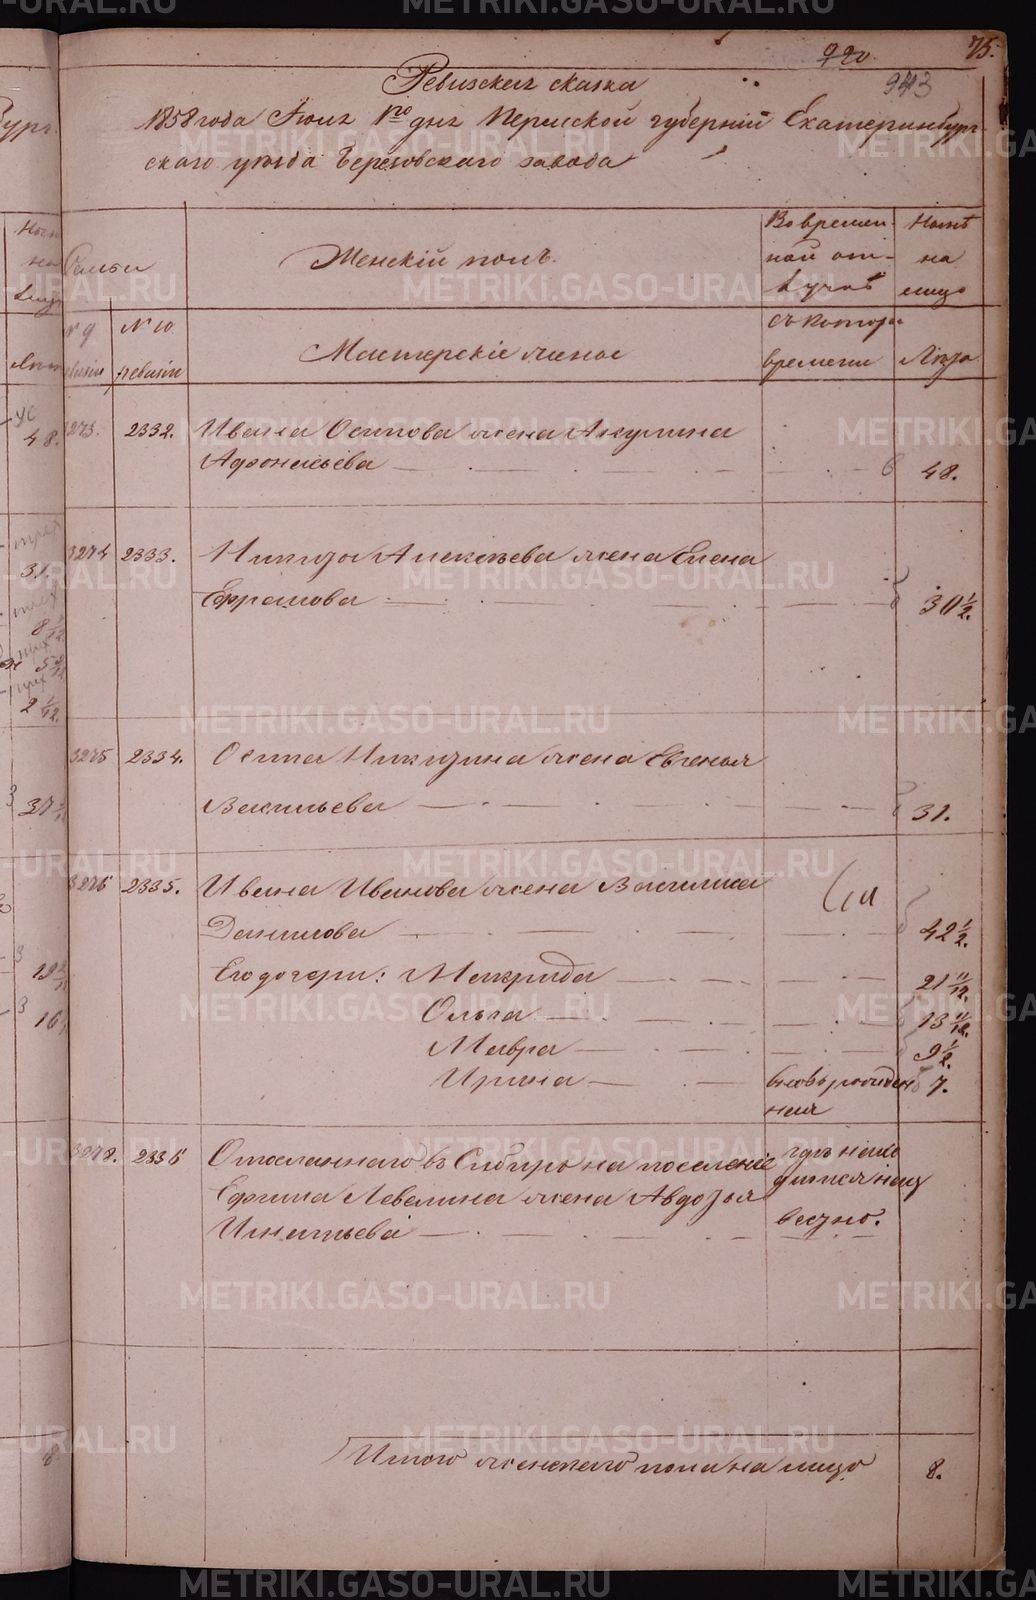 75.
920.
943
Ревизская сказка
1858 года Июля 1го дня Пермской губерніи Екатеринбург-
скаго уѣзда Березовскаго завода
Семьи
Женскій полъ.
Во времен-
ной от-
лучкѣ
Нынѣ
на
лицо
№ 9
ревизіи
№ 10
ревизіи
Мастерскіе жены
Съ котора
времени
Лѣта
3273. 2332. Ивана Осипова жена Акулина
Афонасьева 48.
3274 2333. Никиты Алексѣева жена Елена
Ефимова 30 1/2.
3275 2334. Осипа Никитина жена Евгенья
Васильева 31.
3276 2335. Ивана Иванова жена Василиса
Данилова 42 1/2.
Его дочери: Макрида 21 11/12.
Ольга 13 11/12.
Мавра 9 1/2.
Ирина вновьрожден 7.
ная
3278. 2336 Отосланнаго въ Сибирь на поселеніе гдѣ нахо
Ефима Левалина жена Авдотья дится неиз
Игнатьева вестно.
Итого женскаго пола на лицо 8.
METRIKI.GASO-URAL.RU